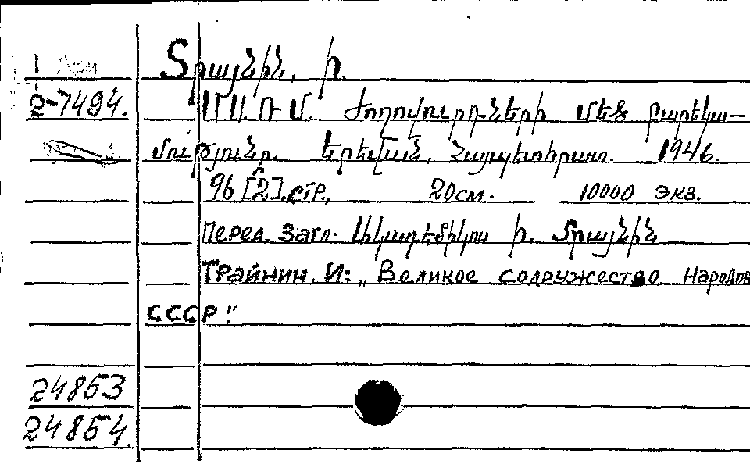 Տրայնին, Ի.
2-7494. ՍՍՌՄ ժողովուրդների մեծ բարեկա-
մությունը. Երևան, Հայպետհրատ. 1946.
96 [2] стр. 20см. 10000 экз.
Перед. загл. Ակադեմիկոս Ի. Տրայնին
Трайнин. И: „Великое содружество народов
СССР"
24853
24854.